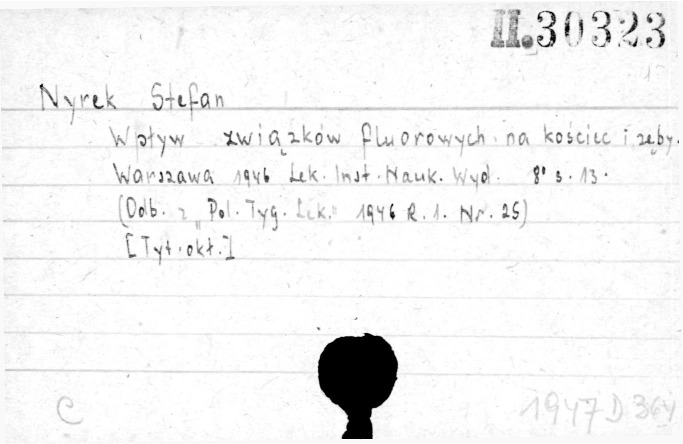 II.30323
Nyrek Stefan
Wpływ związków fluorowych na kościec i zęby.
Warszawa 1946 Lek. Inst. Nauk. Wyd. 8° s. 13.
(Odb. z „Pol. Tyg. Lek." 1946 R. 1. Nr. 25)
[Tyt. okł.]
C
1947 D 364